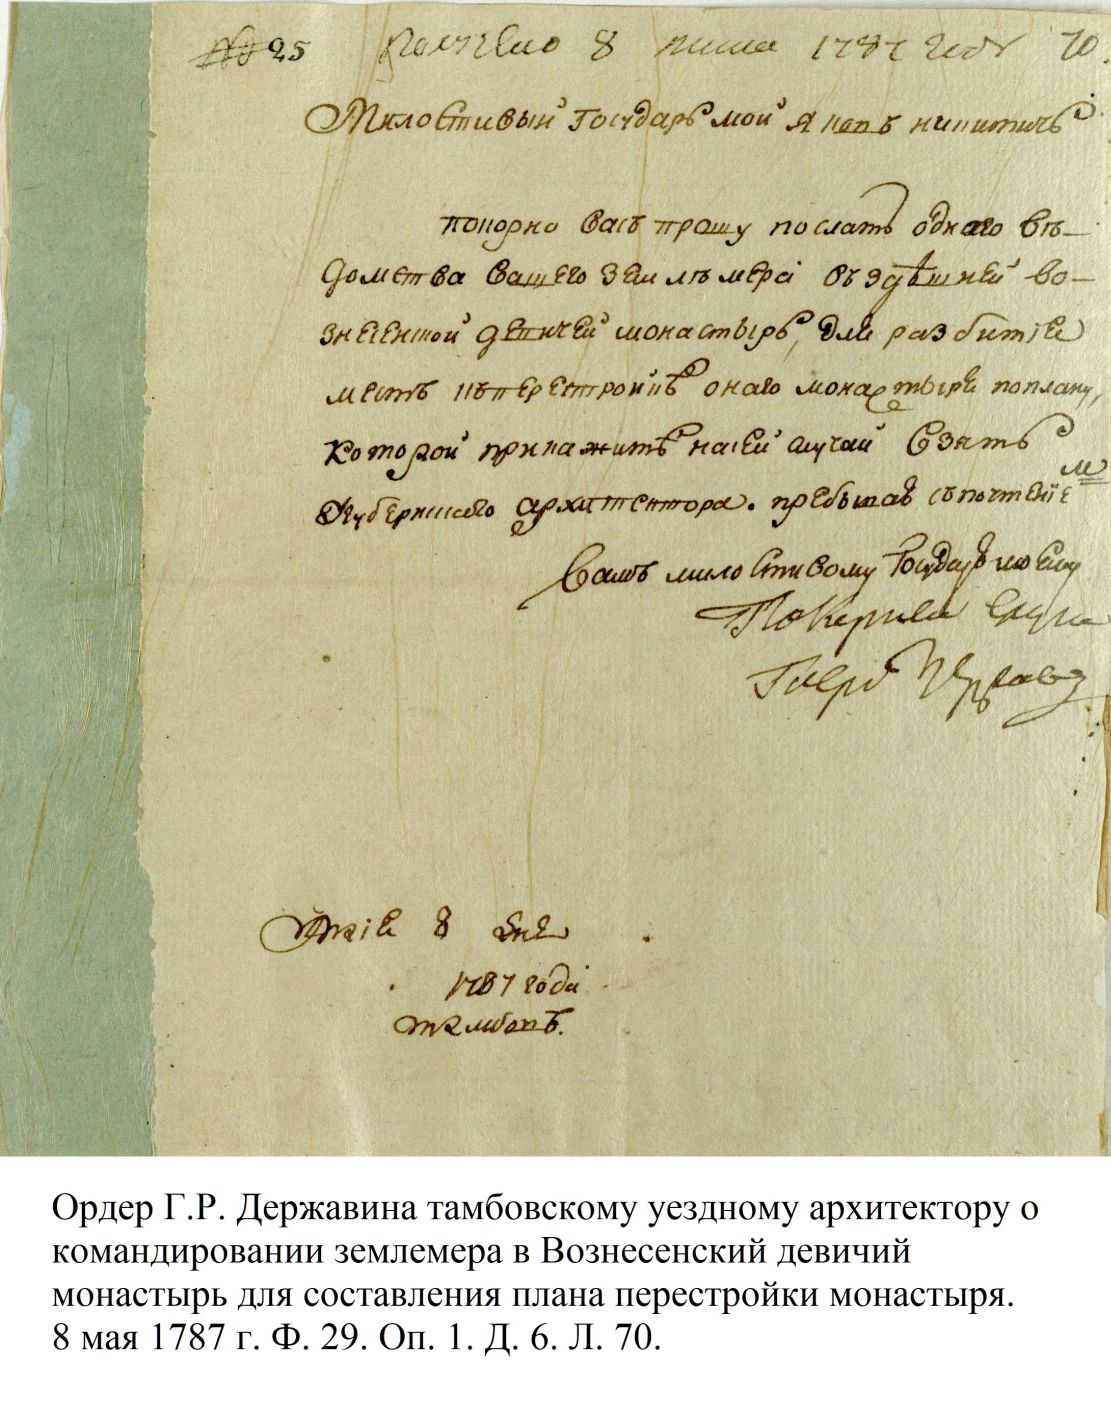 № 25 Получено 8 1787 году 70.
Милостивый Государь мой Яковъ Никитичь
покорно васъ прошу послать однаго вѣ-
домства вашего землѣмера въ здѣшней во-
знесенской девичей монастырь, для разбитие
местъ къ перестройкѣ онаго монастыря по плану,
которой прикажите на сей случай взять
Губернскаго архитектора. пребывая съ почтениемъ
Вамъ милостивому Государю моему
Покорный слуга
Гаврі Державі
Маия 8 дня
1787 года
тамбовъ.
Ордер Г.Р. Державина тамбовскому уездному архитектору о
командировании землемера в Вознесенский девичий
монастырь для составления плана перестройки монастыря.
8 мая 1787 г. Ф. 29. Оп. 1. Д. 6. Л. 70.